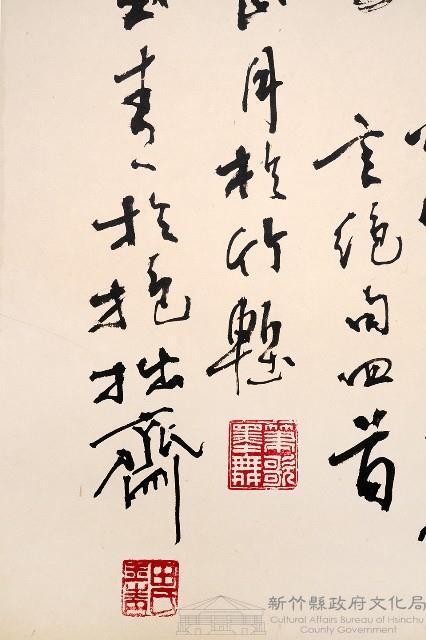 言絕句四首
月於竹塹
筆歌墨舞
玉青於抱拙齋
田氏玉青
新竹縣政府文化局
Cultural Affairs Bureau of Hsinchu
County Government